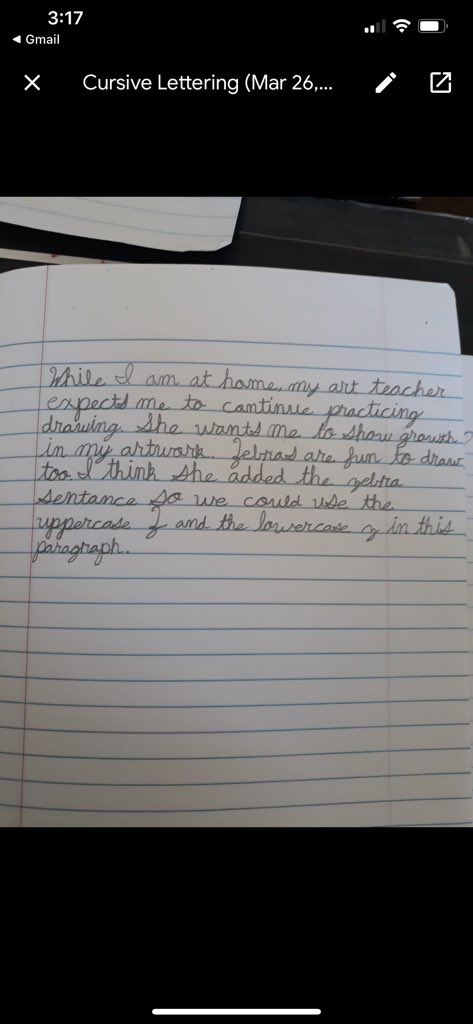 3:17
◄ Gmail
Cursive Lettering (Mar 26,...
While I am at home, my art teacher
expects me to continue practicing
drawing. She wants me to show growth
in my artwork. Zebras are fun to draw
too I think she added the zebra
sentance so we could use the
uppercase Z and the lowercase z in this
paragraph.